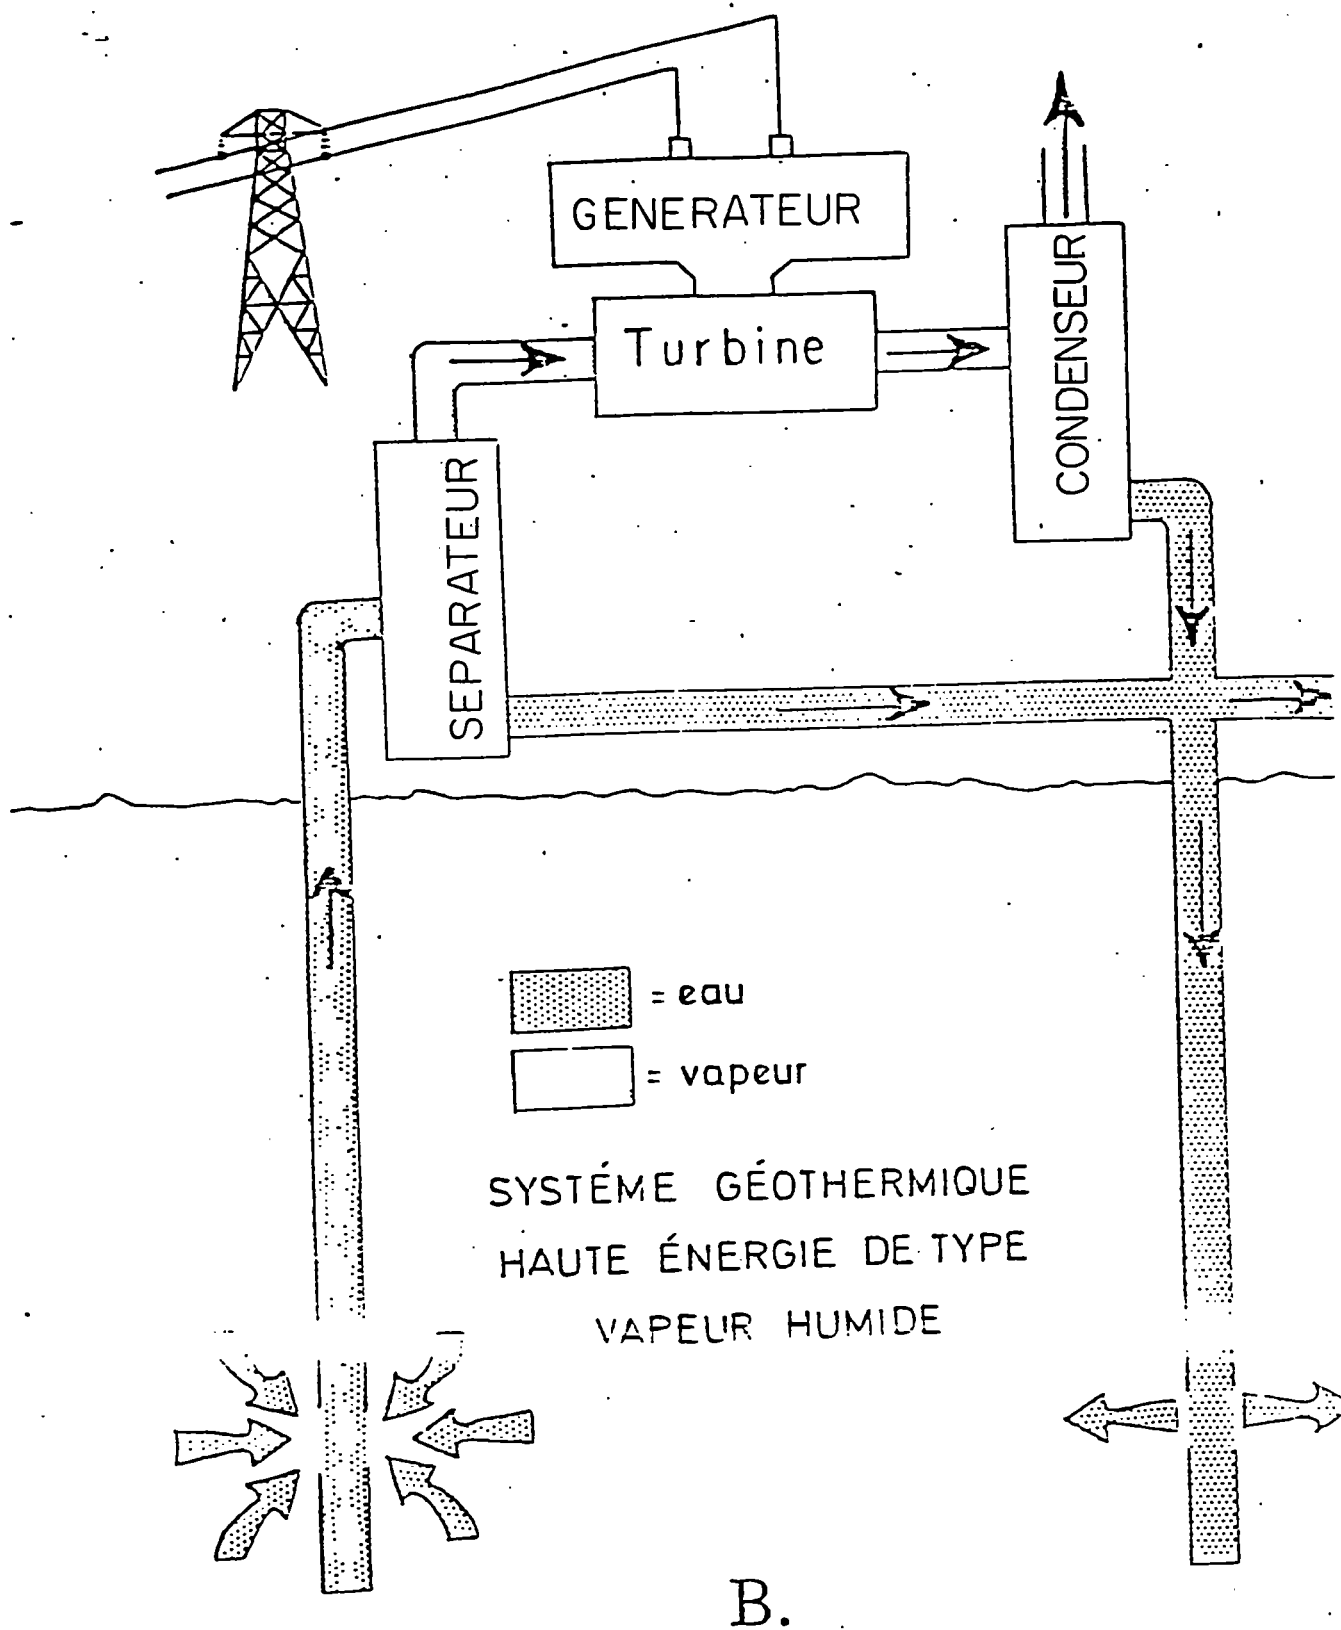 GENERATEUR
Turbine
CONDENSEUR
SEPARATEUR
= eau
= vapeur
SYSTÉME GÉOTHERMIQUE
HAUTE ÉNERGIE DE TYPE
VAPEUR HUMIDE
B.